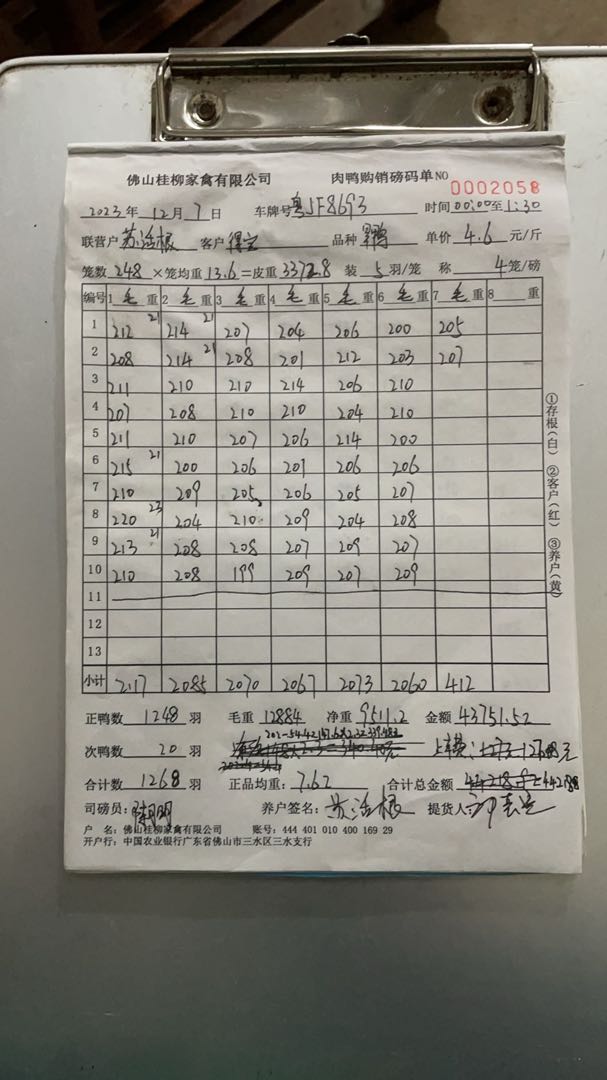 佛山桂柳家禽有限公司 肉鸭购销磅码单NO 0002058
2023年12月7日 车牌号粤JF8693 时间00:00至1:30
联营户 苏活根 客户 品种 鸭 单价 4.6 元/斤
笼数 248 ×笼均重 13.6 =皮重 3372.8 装 5 羽/笼 称 4 笼/磅
编号 1 毛 重 2 毛 重 3 毛 重 4 毛 重 5 毛 重 6 毛 重 7 毛 重 8 重
1 212 21 214 21 207 204 206 200 205
2 208 214 21 208 201 212 203 207
3 211 210 210 214 206 210
4 207 208 210 210 204 210
5 211 210 207 206 214 200
6 215 21 200 206 201 206 206
7 210 209 205 206 205 207
8 220 23 204 210 209 204 208
9 213 21 208 208 207 209 207
10 210 208 199 209 207 209
11
12
13
小计 2117 2085 2070 2067 2073 2060 412
正鸭数 1248 羽 毛重 12884 净重 9511.2 金额 43751.52
次鸭数 20 羽 元
合计数 1268 羽 正品均重: 7.62 合计总金额
司磅员: 养户签名: 苏活根 提货人
户 名: 佛山桂柳家禽有限公司 账号: 444 401 010 400 169 29
开户行: 中国农业银行广东省佛山市三水区三水支行
①存根(白) ②客户(红) ③养户(黄)